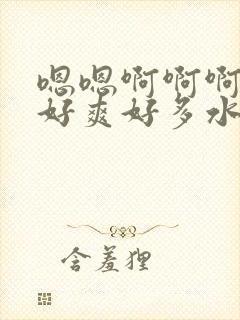 嗯嗯啊啊啊
好爽好多水
含羞狸